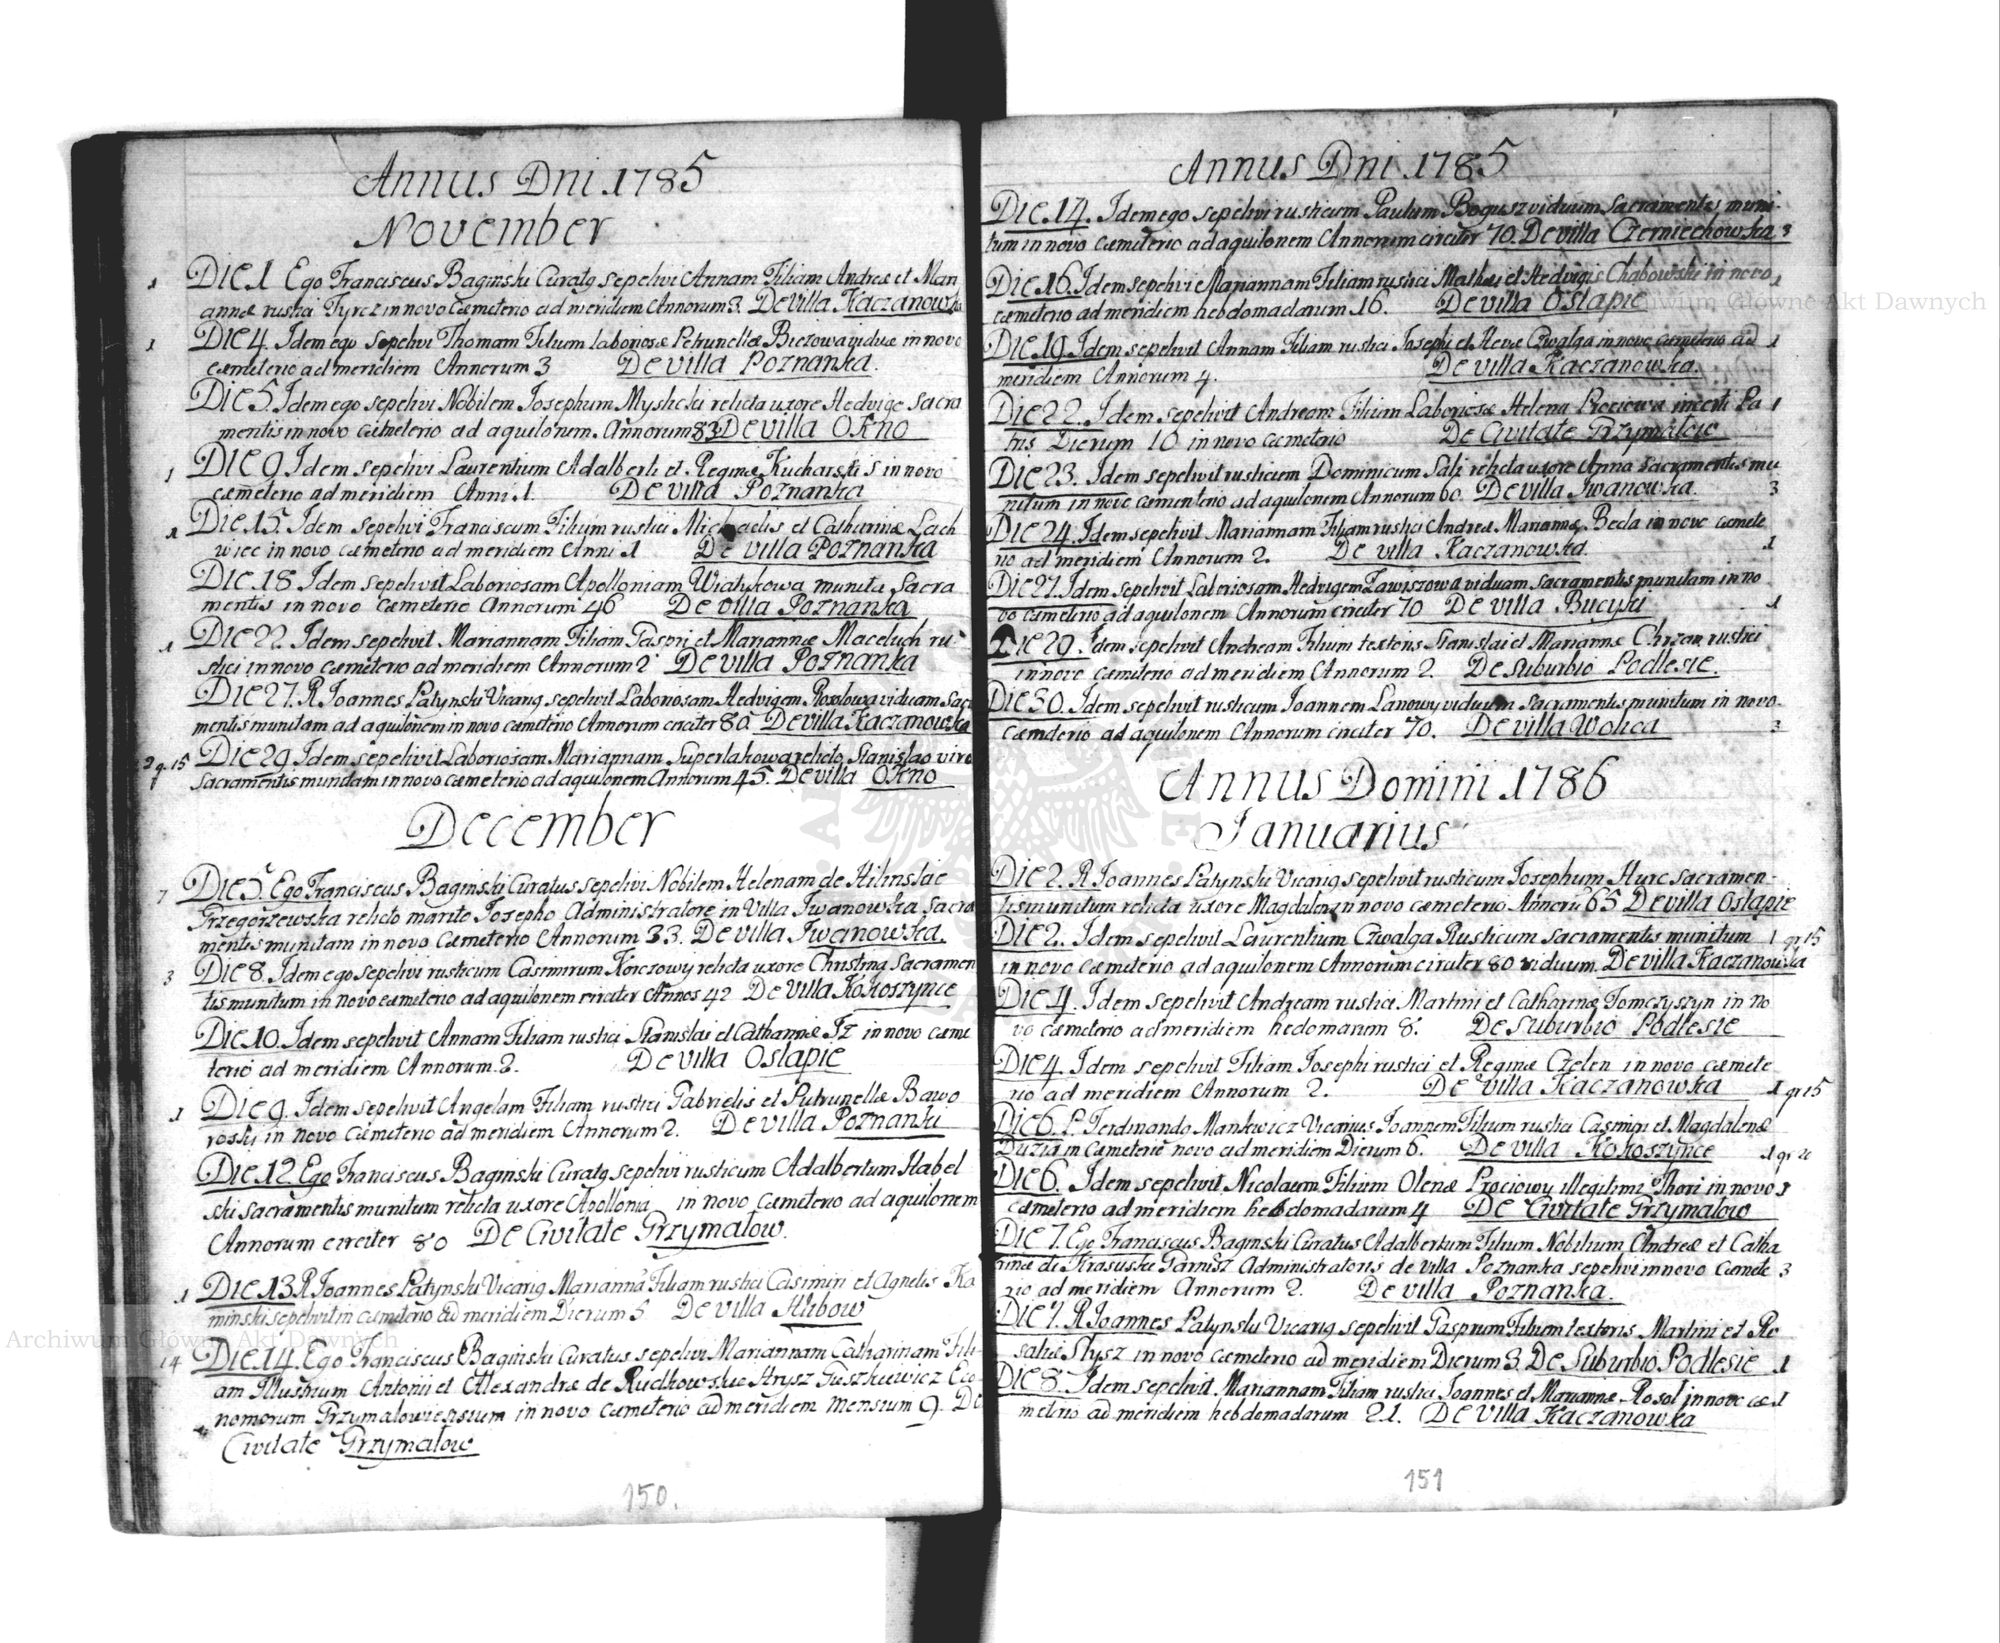 Annus Dni 1785
November
1 Die 1 Ego Franciscus Baginski Curatg sepelivi Annam Filiam Andreæ et Mari
annæ rustici Tyrcz in novo Cæmeterio ad meridiem Annorum 3. De villa Kaczanowka
1 Die 4. Idem ego sepelivi Thomam Filium laboriosæ Petrunellæ Biczowa viduæ in novo
cæmeterio ad meridiem Annorum 3 De villa Poznanka.
Die 5. Idem ego sepelivi Nobilem Josephum Myslicki relicta uxore Hedvige Sacra
mentis in novo cæmeterio ad aquilonem. Annorum 83 De villa Okno
1 Die 9. Idem sepelivi Laurentium Adalberti et Reginæ Kucharski s in novo
cæmeterio ad meridiem Anni 1. De villa Poznanka
1 Die 15. Idem sepelivi Franciscum Filium rustici Michaelis et Catharinæ Lach
wiec in novo cæmeterio ad meridiem Anni 1 De villa Poznanka
Die 18 Idem sepelivit Laboriosam Apolloniam Wiatykowa munita Sacra
mentis in novo cæmeterio Annorum 46 De villa Poznanka
1 Die 22. Idem sepelivit Mariannam Filiam Gaspri et Mariannæ Maceluch ru-
stici in novo cæmeterio ad meridiem Annorum 2 De villa Poznanka
Die 27. R Joannes Latynski Vicarig sepelivit Laboriosam Hedvigem viduam Sacra
mentis munitam ad aquilonem in novo cæmeterio Annorum circiter 80. De villa Kaczanowka
2 g. 15 Die 29. Idem sepelivit Laboriosam Mariannam Superlakowa relicto Stanislao viro
Sacramentis munitam in novo cæmeterio ad aquilonem Annorum 45. De villa Okno
December
7 Die 5. Ego Franciscus Baginski Curatus sepelivi Nobilem Helenam de Hilinskie
Grzegorzewska relicto marito Josepho Administratore in Villa Iwanowka Sacra
mentis munitam in novo Cæmeterio Annorum 33. De villa Iwanowka.
3 Die 8. Idem ego sepelivi rusticum Casimirum Korczowy relicta uxore Christina Sacramen
tis munitum in novo cæmeterio ad aquilonem circiter Annos 42 De villa Kokoszynce
Die 10. Idem sepelivit Annam Filiam rustici Stanislai et Catharinæ Tz in novo cæme
terio ad meridiem Annorum 2. De villa Ostapie
1 Die 9. Idem sepelivit Angelam Filiam rustici Gabrielis et Petrunellæ Bawo
roski in novo cæmeterio ad meridiem Annorum 2. De villa Poznanki
Die 12. Ego Franciscus Baginski Curatg sepelivi rusticum Adalbertum Habel
ski sacramentis munitum relicta uxore Apollonia in novo cæmeterio ad aquilonem
Annorum circiter 80 De Civitate Grzymalow.
1 Die 13 R Joannes Latynski Vicarig Marianna Filiam rustici Casimiri et Agnetis Ka
minski sepelivit in cæmeterio ad meridiem Dierum 5 De villa Hlibow
14 Die 14. Ego Franciscus Baginski Curatus sepelivi Mariannam Catharinam Fili
am Illustrium Antonii et Allexandræ de Rudkowskie Hrysz Guszkiewicz Eco
nomorum Grzymaloviensium in novo cæmeterio ad meridiem Mensium 9. De
Civitate Grzymalow
150.
Annus Dni 1785
Die 14. Idem ego sepelivi rusticum Paulum Bogusz viduum Sacramentis muni-
tum in novo cæmeterio ad aquilonem Annorum circiter 70. De villa Czerniechowka 3
Die 16. Idem sepelivi Mariannam Filiam rustici Mathei et Hedvigis Chabowski in novo 1
cæmeterio ad meridiem hebdomadarum 16. De villa Ostapie
Die 19. Idem sepelivit Annam Filiam rustici Josephi et Hevæ Czwalga in novo cæmeterio ad 1
meridiem Annorum 4. De villa Kaczanowka.
Die 22. Idem sepelivit Andream Filium Laboriosæ Helena Prociowa incerti Pa 1
tris Dierum 10 in novo cæmeterio De Civitate Grzymalow
Die 23. Idem sepelivit rusticum Dominicum Sali relicta uxore Anna sacramentis mu
nitum in novo cæmenterio ad aquilonem Annorum 60. De villa Iwanowka. 3
Die 24. Idem sepelivit Mariannam Filiam rustici Andreæ Mariannæ Beda in novo cæmete
rio ad meridiem Annorum 2. De villa Kaczanowka. 1
Die 27. Idem sepelivit Laboriosam Hedvigem Zawiszowa viduam sacramentis munitam in no
vo cæmeterio ad aquilonem Annorum circiter 70 De villa Bucyki 1
Die 29. Idem sepelivit Andream Filium textoris Stanislai et Mariannæ Chrzan rustici
in novo cæmeterio ad meridiem Annorum 2. De Suburbio Podlesie.
Die 30. Idem sepelivit rusticum Joannem Lanowy viduum Sacramentis munitum in novo
Cæmeterio ad aquilonem Annorum circiter 70. De villa Wolica 3
Annus Domini 1786
Januarius
Die 2. R Joannes Latynski Vicarig sepelivit rusticum Josephum Hurc sacramen-
tis munitum relicta uxore Magdalena in novo cæmeterio Annoru 65 De villa Ostapie
Die 2. Idem sepelivit Laurentium Czwalga Rusticum sacramentis munitum 1 gr 15
in novo cæmeterio ad aquilonem Annorum circiter 80 viduum. De villa Kaczanowka
Die 4. Idem sepelivit Andream rustici Martini et Catharinæ Tomczyszyn in no
vo cæmeterio ad meridiem hedomarum 8. De Suburbio Podlesie
Die 4. Idem sepelivit Filiam Josephi rustici et Reginæ Czelen in novo cæmete
rio ad meridiem Annorum 2. De villa Kaczanowka 1 gr 15
Die 6. P. Ferdinando Mankiewicz Vicarius Joannem Filium rustici Casimiri et Magdalenæ
Duzia in Cæmeterio novo ad meridiem Dierum 6. De villa Kokoszynce 1 gr
Die 6. Idem sepelivit Nicolaum Filium Olenæ Prociowy illegitimi Thori in novo 1
cæmeterio ad meridiem hebdomadarum 4 De Civitate Grzymalow
Die 7. Ego Franciscus Baginski Curatus Adalbertum Filium Nobilium Andreæ et Catha
rinæ de Krasuskie Garnisz Administratoris de villa Poznanka sepelivi in novo Cæmete 3
rio ad meridiem Annorum 2. De villa Poznanka.
Die 7. R Joannes Latynski Vicarig sepelivit Gasprum Filium textoris Martini et Ro
saliæ Slysz in novo cæmeterio ad meridiem Dierum 3. De Suburbio Podlesie 1
Die 8. Idem sepelivit Mariannam Filiam rustici Joannes et Mariannæ Rosol in novo cæ 1
meterio ad meridiem hebdomadarum 21. De villa Kaczanowka
151
Archiwum Główne Akt Dawnych
Archiwum Główne Akt Dawnych